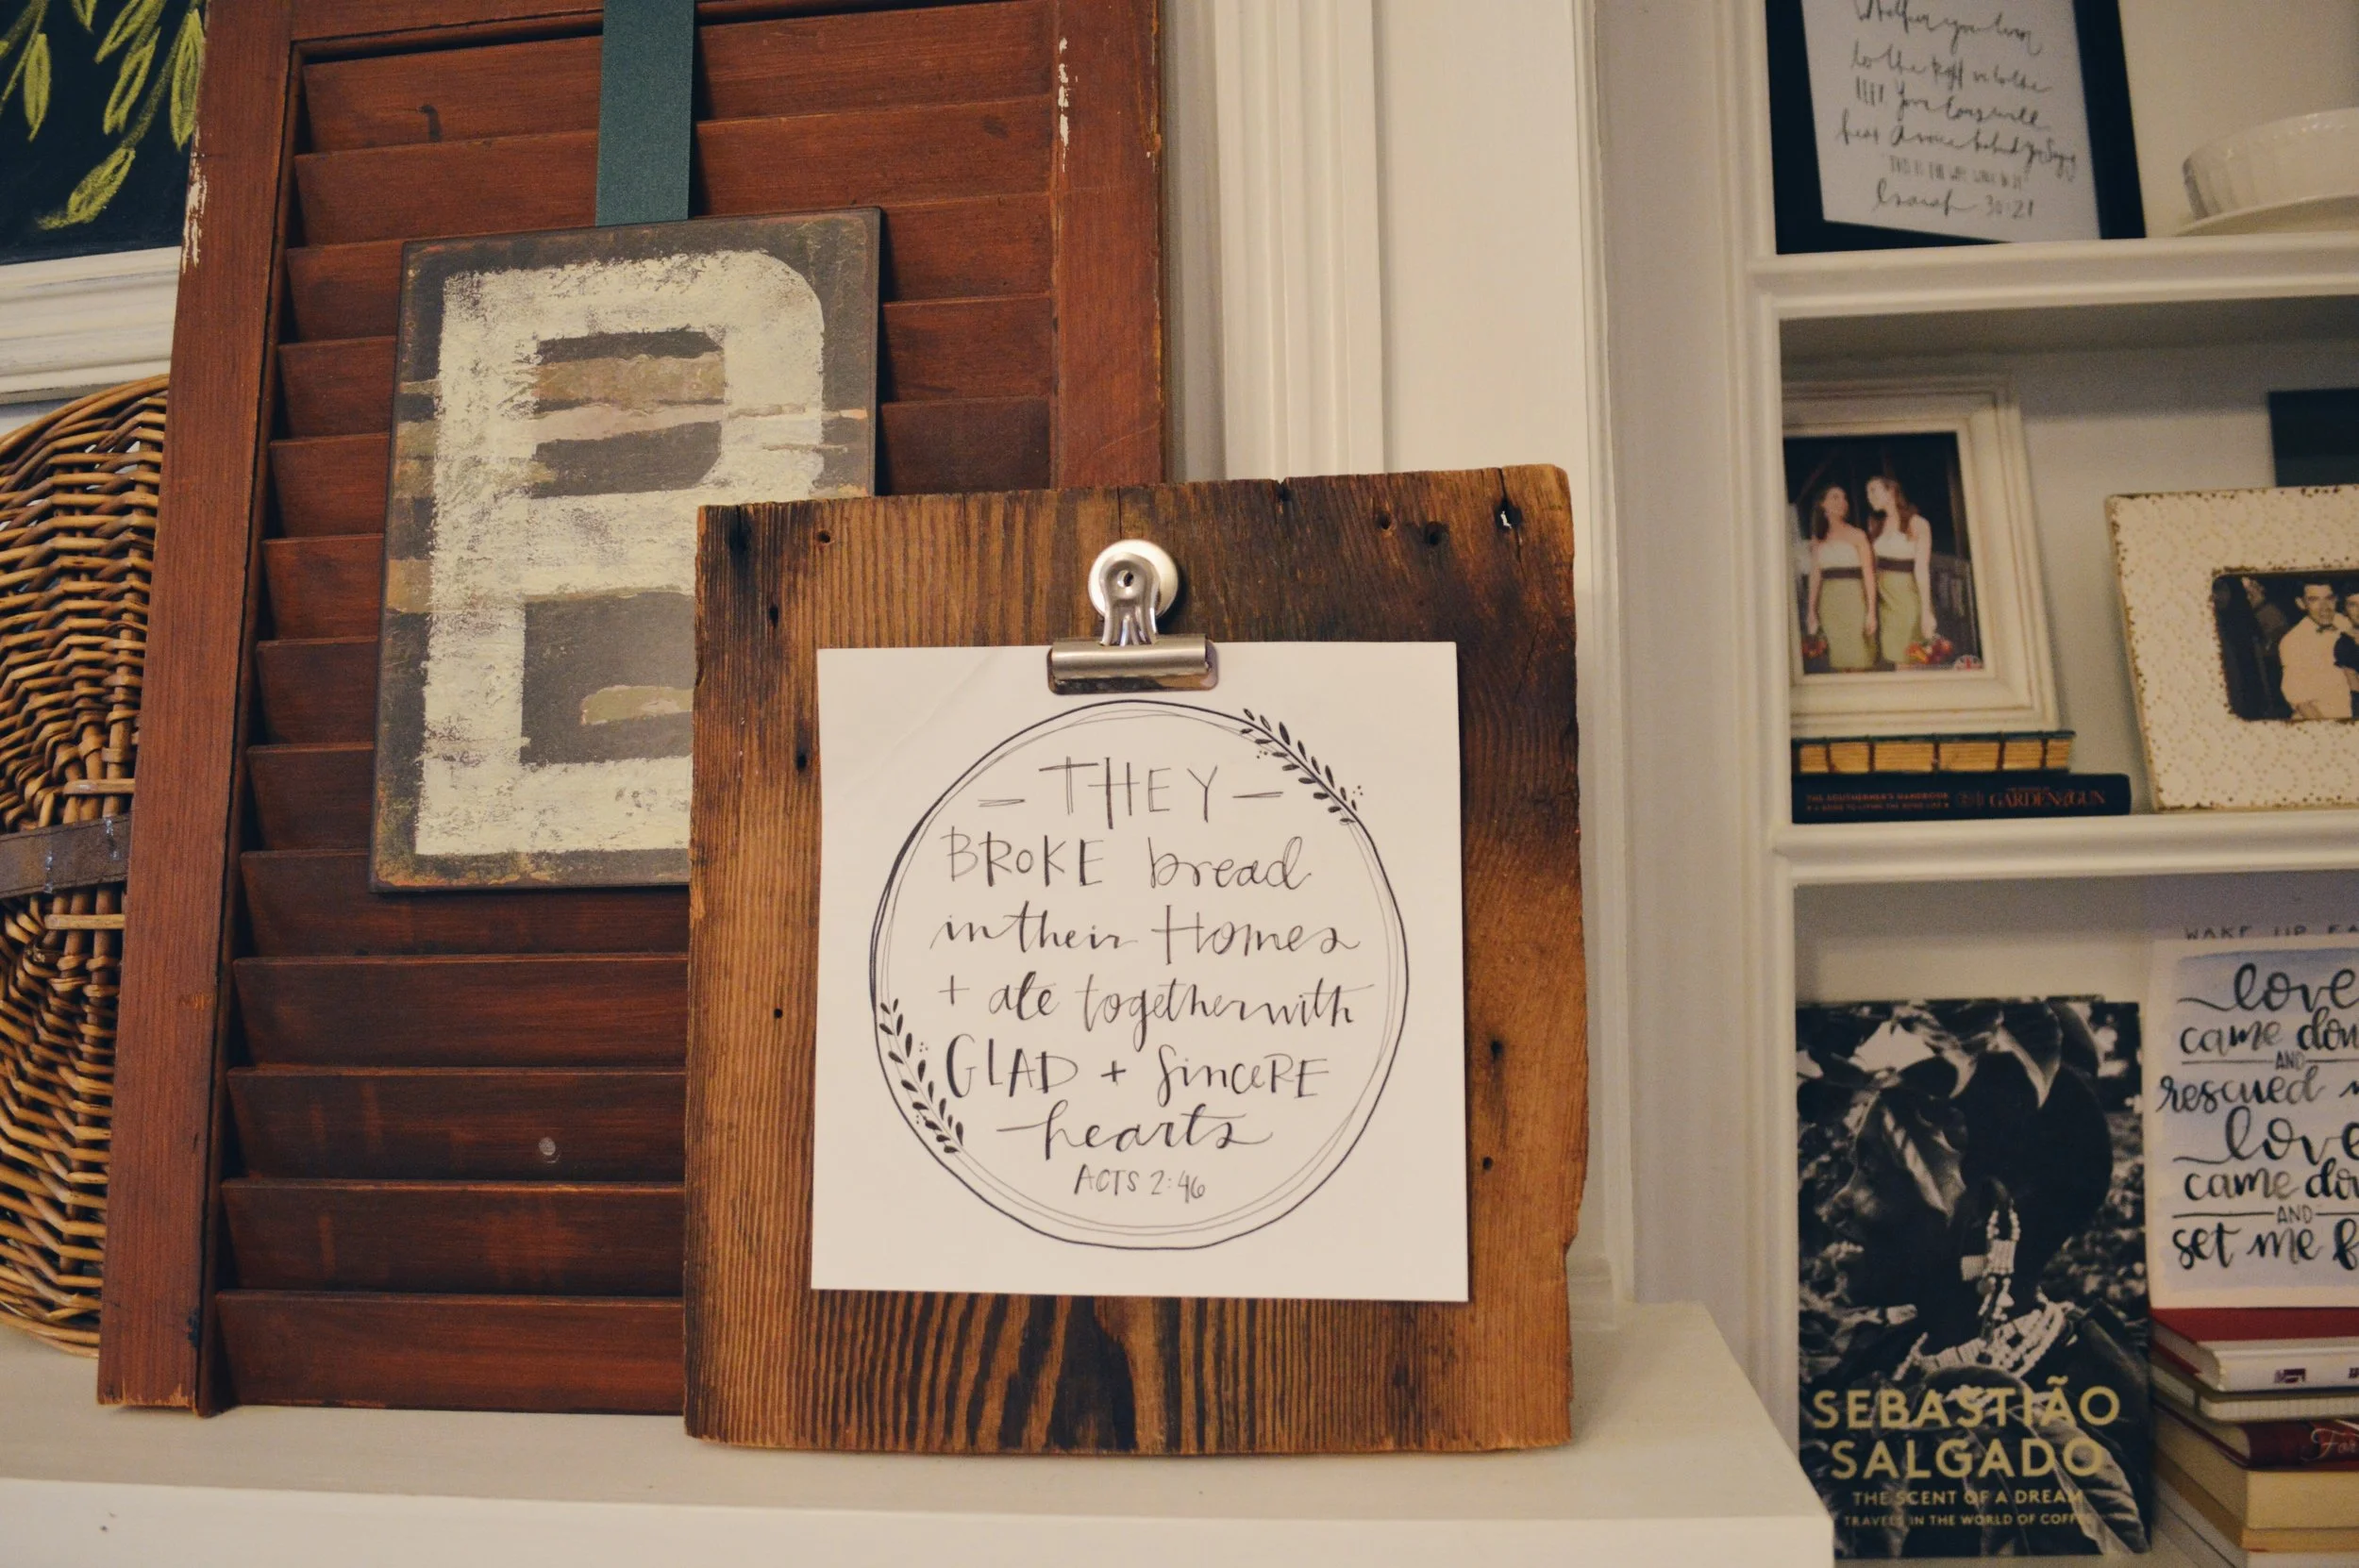 B
- THEY -
BROKE bread
in their Homes
+ ate together with
GLAD + SinceRE
hearts
ACTS 2:46
Whether you turn
to the right or to the
left your ears will
hear a voice behind you saying
"THIS IS THE WAY WALK IN IT"
Isaiah 30:21
THE SOUTHERNER'S HANDBOOK
GARDEN & GUN
WAKE UP
love
came
AND
rescued
love
came
AND
set me
SEBASTIÃO
SALGADO
THE SCENT OF A DREAM
TRAVELS IN THE WORLD OF COFFEE